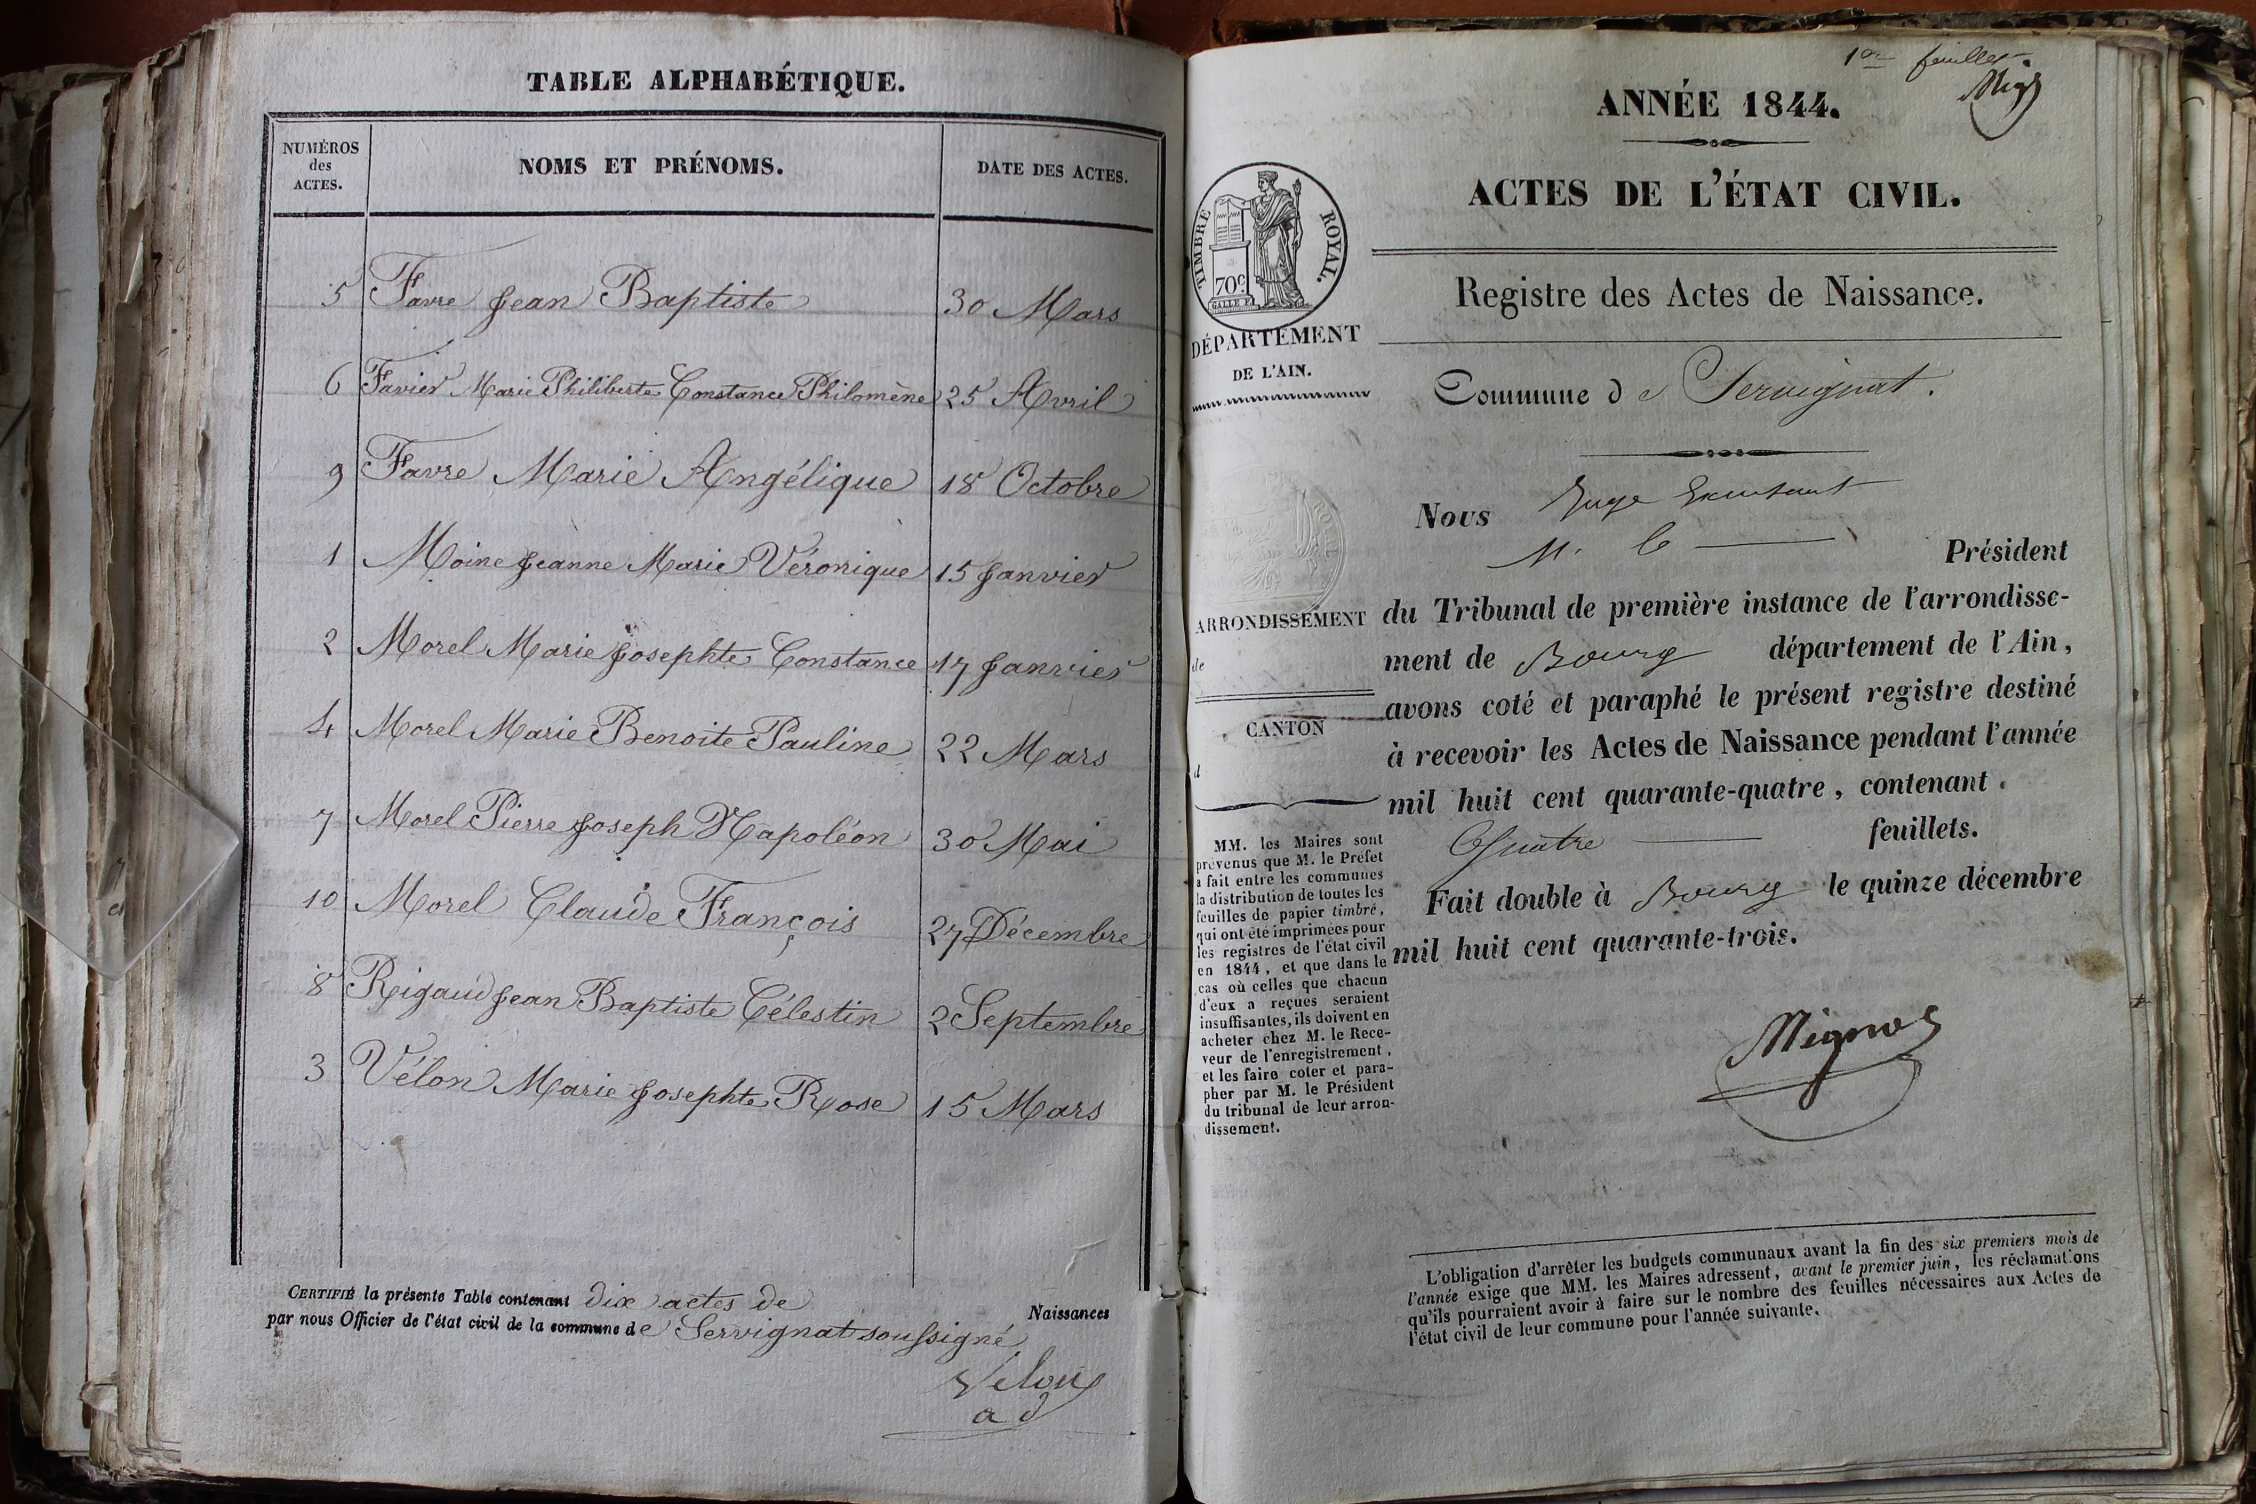 TABLE ALPHABÉTIQUE.
NUMÉROS des ACTES.
NOMS ET PRÉNOMS.
DATE DES ACTES.
5 Favre Jean Baptiste 30 Mars
6 Favier Marie Philiberte Constance Philomène 25 Avril
9 Favre Marie Angélique 18 Octobre
1 Moine Jeanne Marie Véronique 15 Janvier
2 Morel Marie Josephte Constance 17 Janvier
4 Morel Marie Benoite Pauline 22 Mars
7 Morel Pierre Joseph Napoléon 30 Mai
10 Morel Claude François 27 Décembre
8 Rigaud Jean Baptiste Célestin 2 Septembre
3 Vélon Marie Josephte Rose 15 Mars
CERTIFIÉ la présente Table contenant dix actes de Naissances
par nous Officier de l'état civil de la commune de Servignat soussigné
Vélon
ad
1er feuillet
ANNÉE 1844.
ACTES DE L'ÉTAT CIVIL.
TIMBRE ROYAL.
70c
DÉPARTEMENT
DE L'AIN.
Registre des Actes de Naissance.
Commune de Servignat.
Nous Juge
Président
du Tribunal de première instance de l'arrondisse-
ment de Bourg département de l'Ain,
avons coté et paraphé le présent registre destiné
à recevoir les Actes de Naissance pendant l'année
mil huit cent quarante-quatre, contenant
Quatre feuillets.
Fait double à Bourg le quinze décembre
mil huit cent quarante-trois.
ARRONDISSEMENT
de
CANTON
d
MM. les Maires sont
prévenus que M. le Préfet
a fait entre les communes
la distribution de toutes les
feuilles de papier timbré,
qui ont été imprimées pour
les registres de l'état civil
en 1844, et que dans le
cas où celles que chacun
d'eux a reçues seraient
insuffisantes, ils doivent en
acheter chez M. le Rece-
veur de l'enregistrement,
et les faire coter et para-
pher par M. le Président
du tribunal de leur arron-
dissement.
L'obligation d'arrêter les budgets communaux avant la fin des six premiers mois de
l'année exige que MM. les Maires adressent, avant le premier juin, les réclamations
qu'ils pourraient avoir à faire sur le nombre des feuilles nécessaires aux Actes de
l'état civil de leur commune pour l'année suivante.